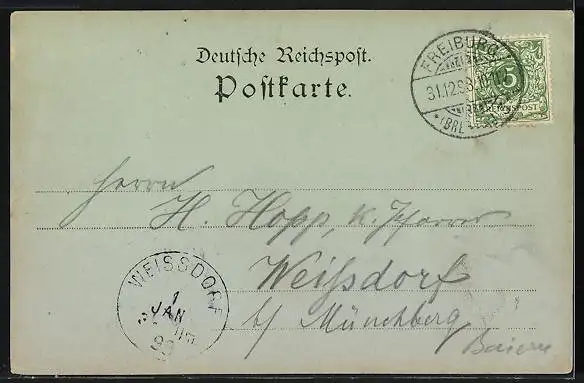 Deutsche Reichspost.
Postkarte.
FREIBURG
31.12.98. 10-11
* (BREISGAU)
5
REICHSPOST
Herrn
H. Hopp, k. Pfarrer
Weißdorf
b/ Münchberg
Baiern
WEISSDORF
1
JAN
99